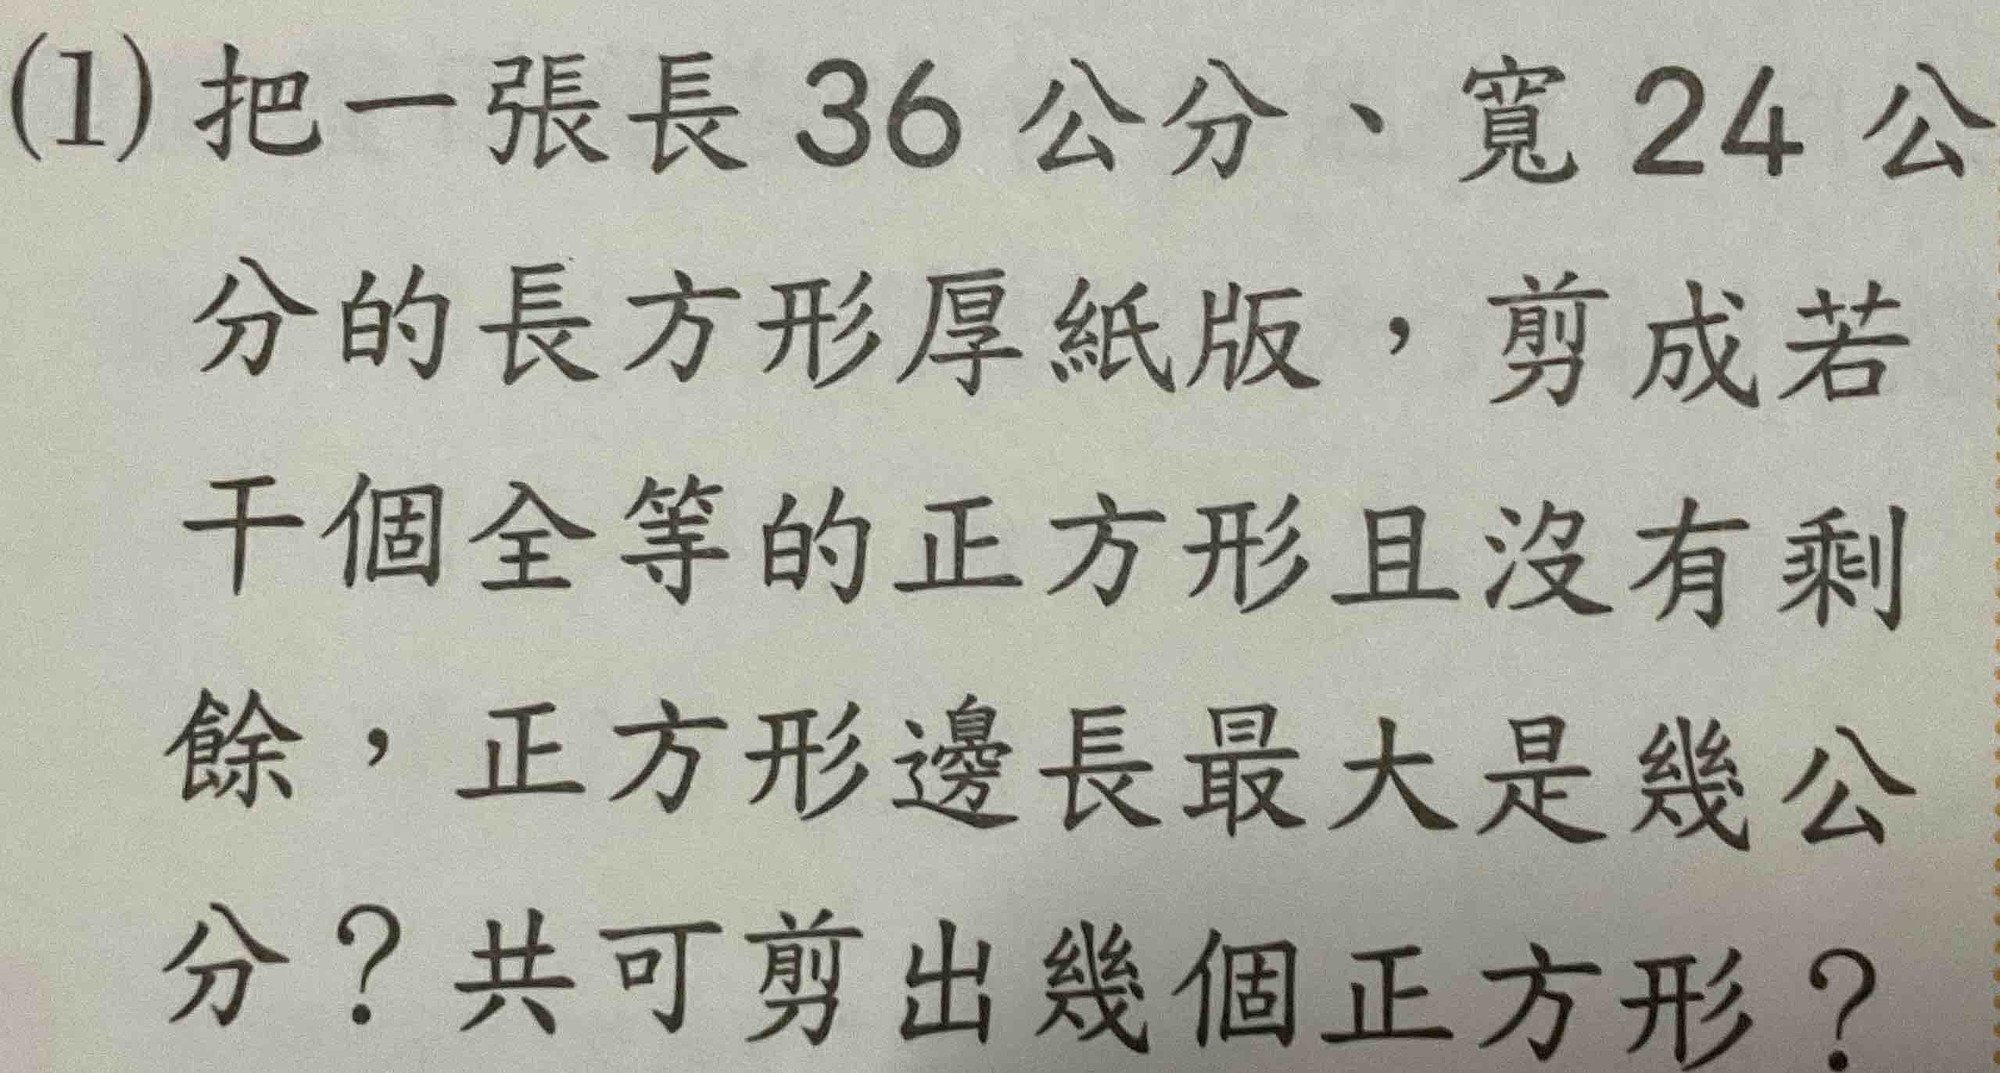 (1) 把一張長 36 公分、寬 24 公
分的長方形厚紙版，剪成若
干個全等的正方形且沒有剩
餘，正方形邊長最大是幾公
分？共可剪出幾個正方形？